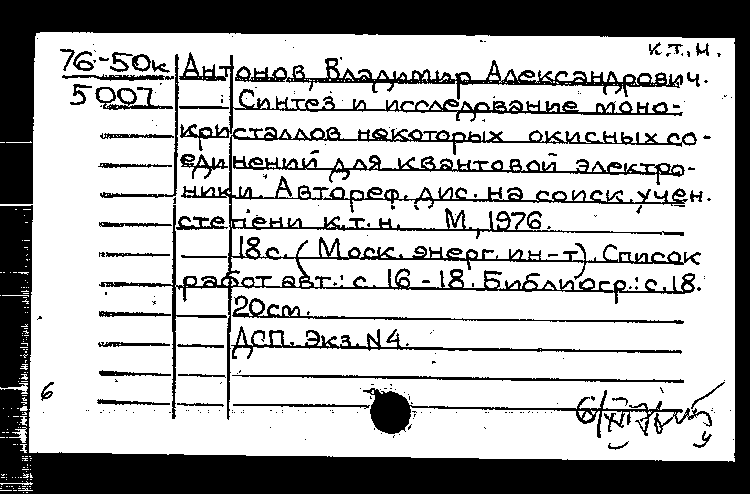 к.т.н.
76-50к Антонов, Владимир Александрович.
5007 Синтез и исследование моно-
кристаллов некоторых окисных со-
единений для квантовой электро-
ники. Автореф. дис. на соиск. учен.
степени к.т.н. М., 1976.
18с. (Моск. энерг. ин-т). Список
работ авт.: с. 16-18. Библиогр.: с. 18.
20см.
ДСП. Экз. N4.
6
6/XII